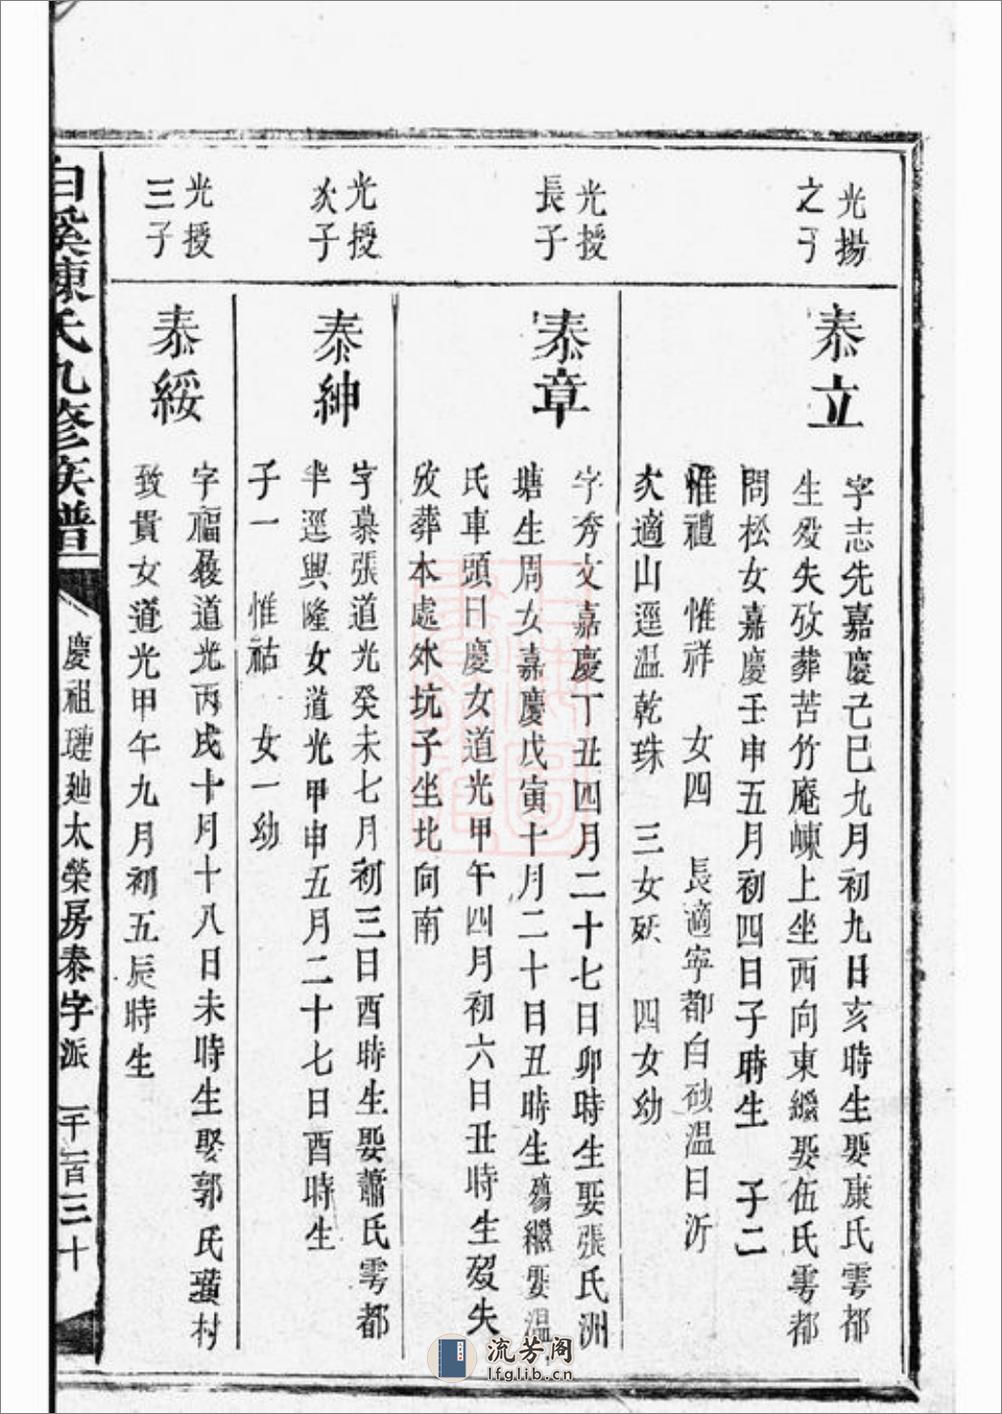 光揚
之子
泰立
字志先嘉慶己巳九月初九日亥時生娶康氏雩都
生歿失攷葬苦竹庵崠上坐西向東繼娶伍氏雩都
問松女嘉慶壬申五月初四日子時生 子二
惟禮 惟祥 女四 長適寧都白砂溫日沂
次適山逕溫乾珠 三女殀 四女幼
光授
長子
泰章
字秀文嘉慶丁丑四月二十七日卯時生娶張氏洲
塘生周女嘉慶戊寅十月二十日丑時生殤繼娶溫
氏車頭日慶女道光甲午四月初六日丑時生歿失
攷葬本處氹坑子坐北向南
光授
次子
泰紳
字慕張道光癸未七月初三日酉時生娶蕭氏雩都
半逕興隆女道光甲申五月二十七日酉時生
子一 惟祜 女一幼
光授
三子
泰綏
字福履道光丙戌十月十八日未時生娶郭氏璜村
致貫女道光甲午九月初五辰時生
白溪陳氏九修族譜
慶祖璉廸太榮房泰字派 一千一百三十
流芳阁
lfglib.cn